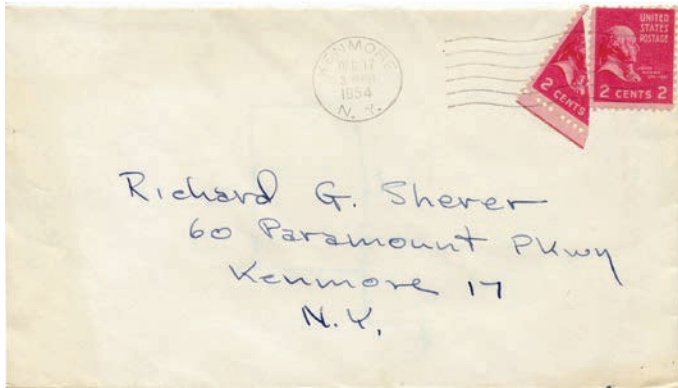 KENMORE
DEC 17
1954
N. Y.
2 CENTS
UNITED
STATES
POSTAGE
2 CENTS 2
Richard G. Sherer
60 Paramount Pkwy
Kenmore 17
N.Y.